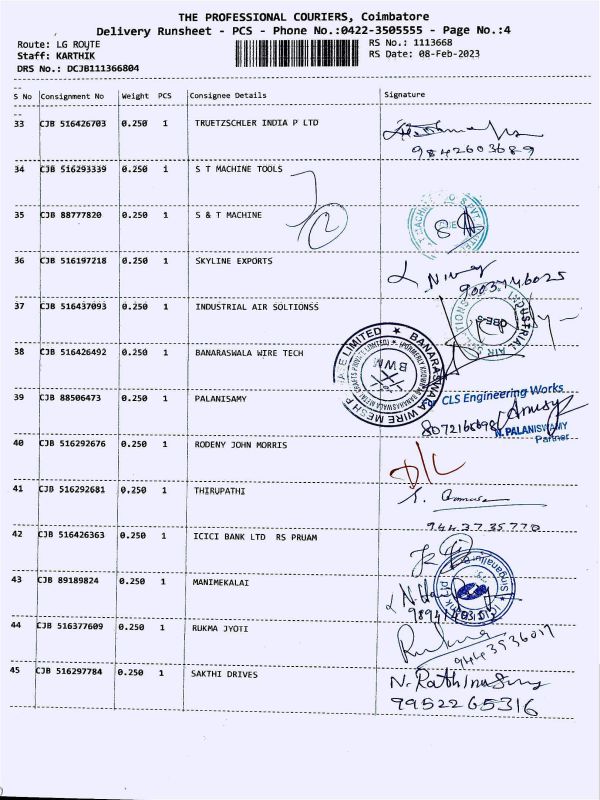 THE PROFESSIONAL COURIERS, Coimbatore
Delivery Runsheet - PCS - Phone No.:0422-3505555 - Page No.:4
Route: LG ROUTE RS No.: 1113668
Staff: KARTHIK RS Date: 08-Feb-2023
DRS No.: DCJB111366804
S No Consignment No Weight PCS Consignee Details Signature
33 CJB 516426703 0.250 1 TRUETZSCHLER INDIA P LTD
9842603689
34 CJB 516293339 0.250 1 S T MACHINE TOOLS
2
35 CJB 88777820 0.250 1 S & T MACHINE
36 CJB 516197218 0.250 1 SKYLINE EXPORTS
9003746025
37 CJB 516437093 0.250 1 INDUSTRIAL AIR SOLTIONSS
INDUSTRIAL AIR
CBE-5
38 CJB 516426492 0.250 1 BANARASWALA WIRE TECH
BANARASWALA WIRE MESH LIMITED
BWM
39 CJB 88506473 0.250 1 PALANISAMY
For CLS Engineering Works
N.PALANISWAMY
Partner
40 CJB 516292676 0.250 1 RODENY JOHN MORRIS
D/L
41 CJB 516292681 0.250 1 THIRUPATHI
9443735770
42 CJB 516426363 0.250 1 ICICI BANK LTD RS PRUAM
43 CJB 89189824 0.250 1 MANIMEKALAI
44 CJB 516377609 0.250 1 RUKMA JYOTI
Rukma
9443536017
45 CJB 516297784 0.250 1 SAKTHI DRIVES
N. Rathinasamy
9952265316